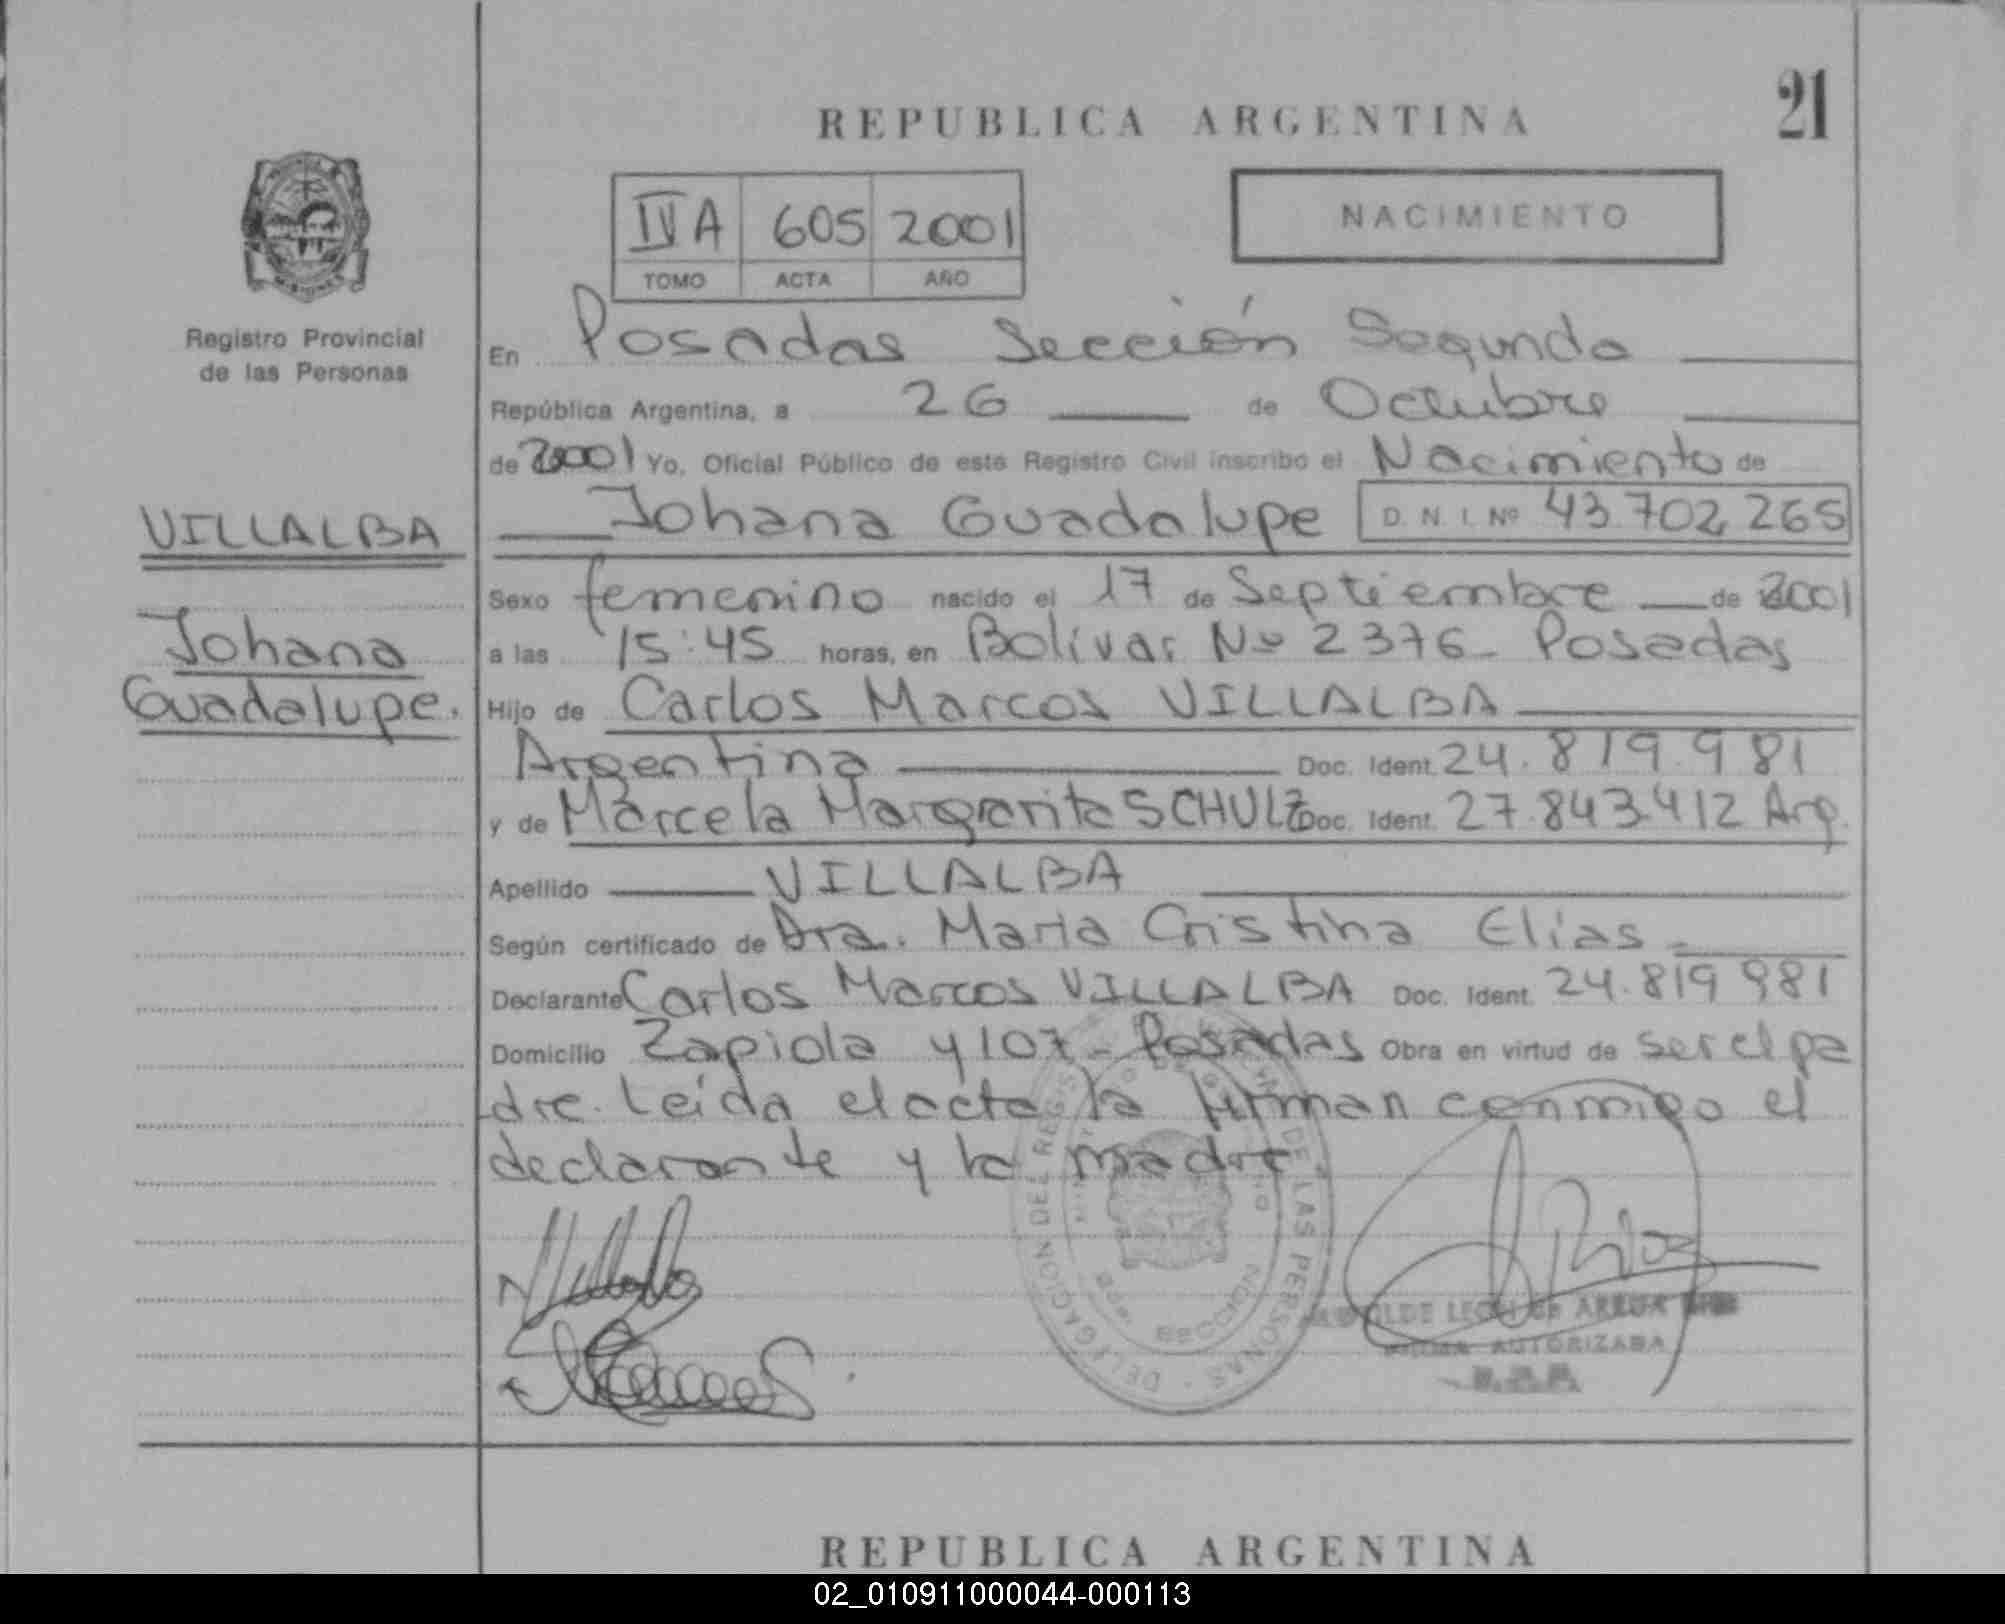 21
REPUBLICA ARGENTINA
NACIMIENTO
IV A 605 2001
TOMO ACTA AÑO
MISIONES
Registro Provincial
de las Personas
VILLALBA
Johana
Guadalupe.
En Posadas Sección Segunda
República Argentina, a 26 de Octubre
de 2001 Yo, Oficial Público de este Registro Civil inscribo el Nacimiento de
Johana Guadalupe D. N. I. Nº 43.702.265
Sexo femenino nacido el 17 de Septiembre de 2001
a las 15:45 horas, en Bolívar Nº 2376 - Posadas
Hijo de Carlos Marcos VILLALBA
Argentina Doc. Ident. 24.819.981
y de Marcela Margarita SCHULZ Doc. Ident. 27.843.412 Arg.
Apellido VILLALBA
Según certificado de Dra. Maria Cristina Elías
Declarante Carlos Marcos VILLALBA Doc. Ident. 24.819.981
Domicilio Zapiola y 107 - Posadas Obra en virtud de ser el pa
dre. Leída el acta la firman conmigo el
declarante y la madre
DELEGACION DEL REGISTRO DE LAS PERSONAS
SECCION
FIRMA AUTORIZADA
REPUBLICA ARGENTINA
02_010911000044-000113